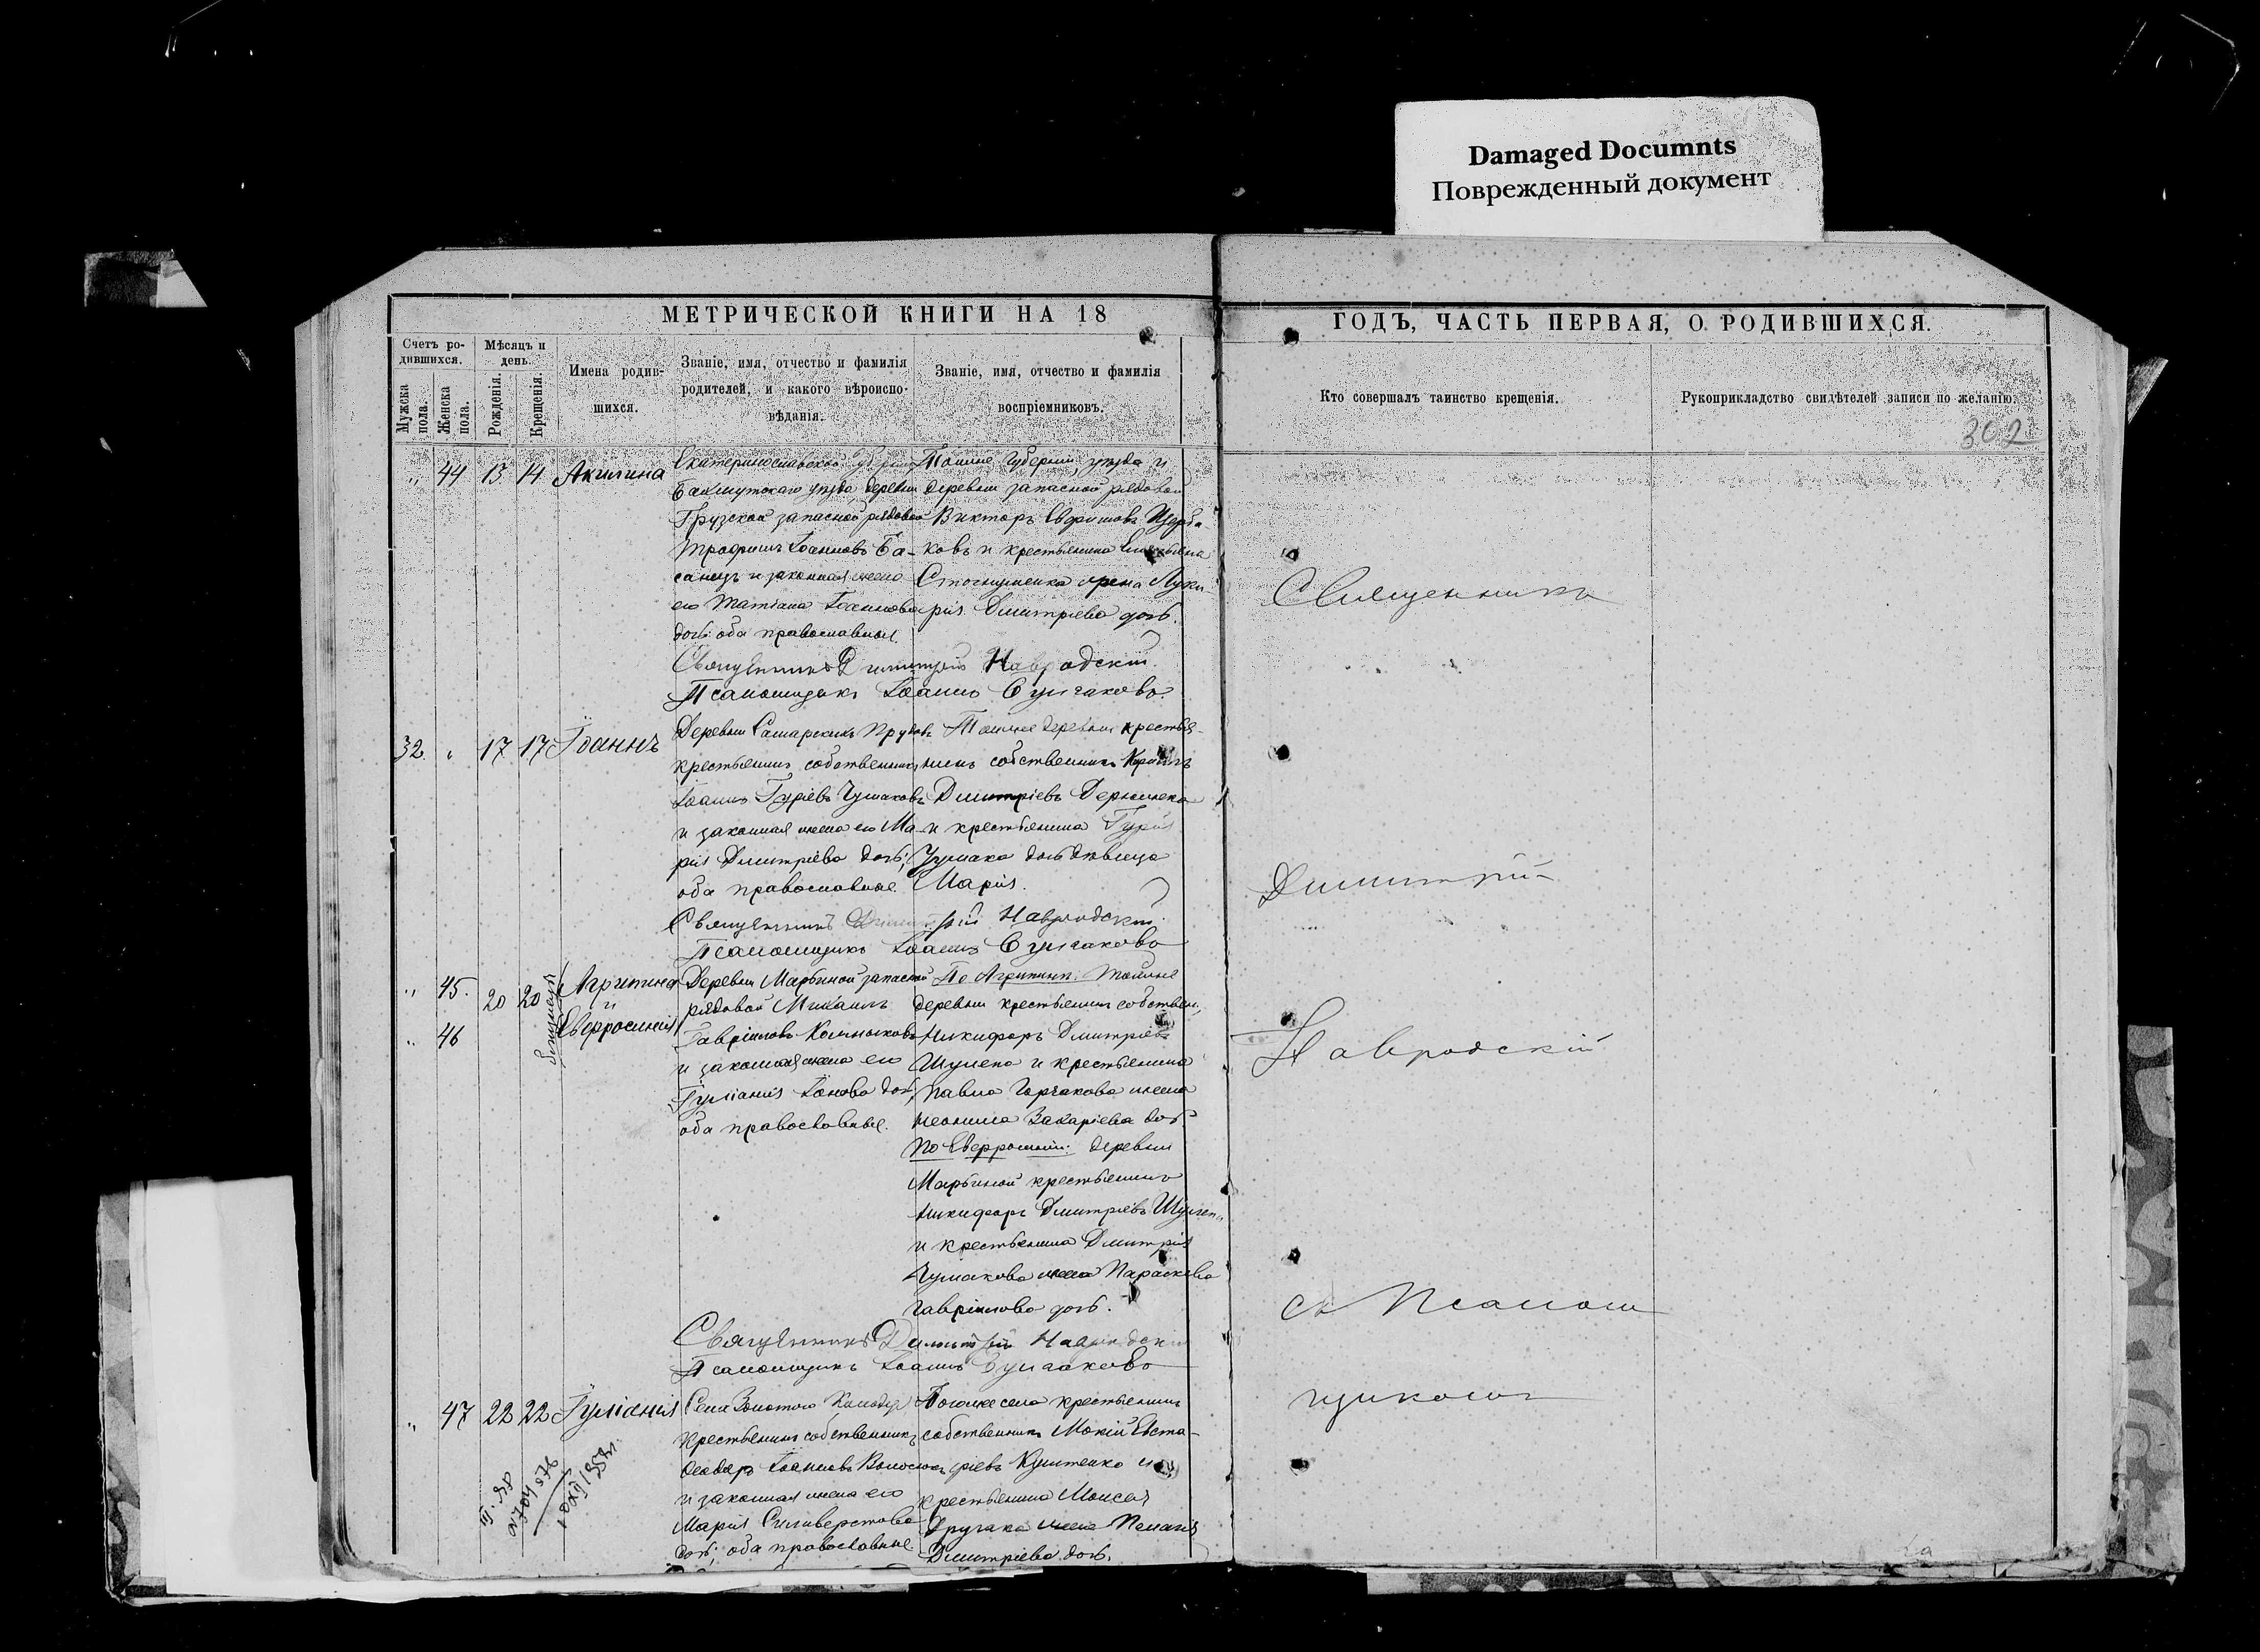 Damaged Documnts
Поврежденный документ
МЕТРИЧЕСКОЙ КНИГИ НА 18
ГОДЪ, ЧАСТЬ ПЕРВАЯ, О РОДИВШИХСЯ.
Счетъ ро-
дившихся.
Мужска
пола.
Женска
пола.
Мѣсяцъ и
день.
Рожденія.
Крещенія.
Имена родив-
шихся.
Званіе, имя, отчество и фамилія
родителей, и какого вѣроиспо-
вѣданія.
Званіе, имя, отчество и фамилія
воспріемниковъ.
Кто совершалъ таинство крещенія.
Рукоприкладство свидѣтелей записи по желанію.
302
„ 44 13 14 Акилина
Екатеринославской губерніи
Бахмутскаго уѣзда деревни
Грузской запасной рядовой
Трофимъ Іоанновъ Ба-
санецъ и законная жена
его Татіана Іоаннова
дочь: оба православныя.
Тойже губерніи, уѣзда и
деревни запасной рядовой
Викторъ Щерба-
ковъ и крестьянина
жена
Дмитріева дочь.
Священникъ Димитрій Навродскій.
Псаломщикъ Іоаннъ Булгаковъ.
32. „ 17 17 Іоаннъ
Деревни Самарскихъ Прудовъ
крестьянинъ собственникъ
Іоаннъ Гуріевъ Чумаковъ
и законная жена его Ма-
рія Дмитріева дочь;
оба православные.
Тойже деревни крестья-
нинъ собственникъ
Дмитріевъ
и крестьянина Гурія
Чумака дочь дѣвица
Марія.
Священникъ Димитрій Навродскій.
Псаломщикъ Іоаннъ Булгаковъ
„ 45. 20 20 Агрипина
и
„ 46 Евфросинія
близнецы
Деревни Марьиной запасной
рядовой Михаилъ
Гавріиловъ Колпаковъ
и законная жена его
Іуліанія дочь,
оба православные.
По Агрипинѣ: тойже
деревни крестьянинъ собствен.,
Никифоръ Дмитріевъ
и крестьянина
Павла Горчакова жена
Захаріева дочь
По Евфросиніи: деревни
Марьиной крестьянинъ
Никифоръ Дмитріевъ
и крестьянина Дмитрія
Чумакова жена Параскева
Гавріилова дочь.
Священникъ Димитрій Навродскій
Псаломщикъ Іоаннъ Булгаковъ
„ 47 22 22 Іуліанія
Села Золотого Колодезя
крестьянинъ собственникъ
Ѳеодоръ Іоанновъ
и законная жена его
Марія Силиверстова
дочь; оба православные
Тогоже села крестьянинъ
собственникъ Мокій Евста-
фіевъ и
крестьянина Моисея
жена Пелагія
Дмитріева дочь.
Священникъ
Димитрій
Навродскій
съ Псалом
щикомъ